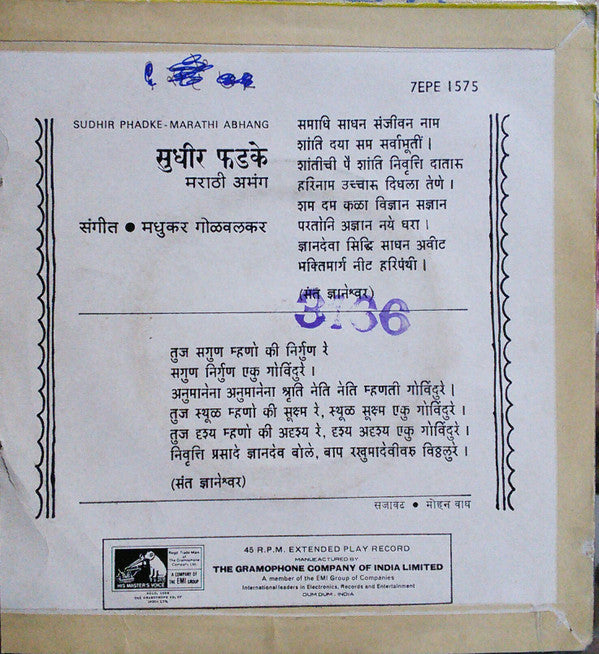 7EPE 1575
SUDHIR PHADKE-MARATHI ABHANG
सुधीर फडके
मराठी अभंग
संगीत ● मधुकर गोळवलकर
समाधि साधन संजीवन नाम
शांति दया सम सर्वाभूतीं ।
शांतीची पैं शांति निवृत्ति दातारू
हरिनाम उच्चारू दिधला तेणे ।
शम दम कळा विज्ञान सज्ञान
परतोनि अज्ञान नये घरा ।
ज्ञानदेवा सिद्धि साधन अवीट
भक्तिमार्ग नीट हरिपंथी ।
(संत ज्ञानेश्वर)
3136
तुज सगुण म्हणो की निर्गुण रे
सगुण निर्गुण एकु गोविंदुरे ।
अनुमानेना अनुमानेना श्रृति नेति नेति म्हणती गोविंदुरे ।
तुज स्थूळ म्हणो की सूक्ष्म रे, स्थूळ सूक्ष्म एकु गोविंदुरे ।
तुज दृश्य म्हणो की अदृश्य रे, दृश्य अदृश्य एकु गोविंदुरे ।
निवृत्ति प्रसादे ज्ञानदेव बोले, बाप रखुमादेवीवरु विठ्ठलुरे ।
(संत ज्ञानेश्वर)
सजावट • मोहन वाघ
HIS MASTER'S VOICE
Regd. Trade Mark
The Gramophone
Company Ltd.
A COMPANY OF
THE EMI GROUP
THE GRAMOPHONE CO. OF
INDIA LTD.
45 R.P.M. EXTENDED PLAY RECORD
MANUFACTURED BY
THE GRAMOPHONE COMPANY OF INDIA LIMITED
A member of the EMI Group of Companies
International leaders in Electronics, Records and Entertainment
DUM DUM, INDIA